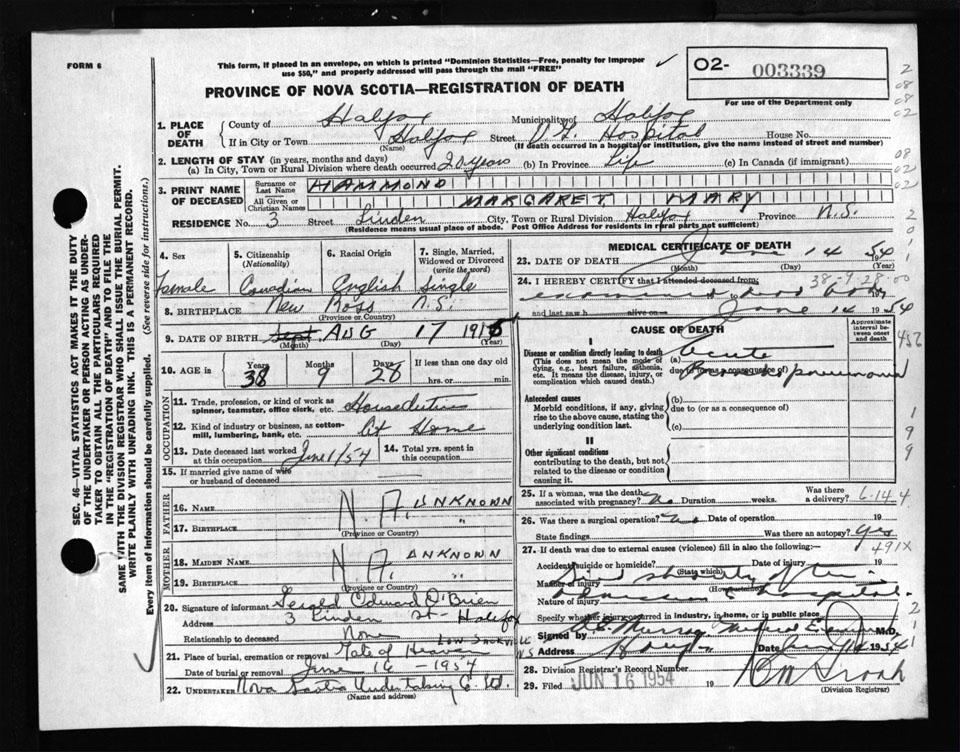 FORM 6
This form, if placed in an envelope, on which is printed "Dominion Statistics—Free, penalty for improper
use $50," and properly addressed will pass through the mail "FREE"
02- 003339
For use of the Department only
PROVINCE OF NOVA SCOTIA—REGISTRATION OF DEATH
1. PLACE OF DEATH
County of Halifax Municipality of Halifax
If in City or Town Halifax Street V.G. Hospital House No.
(Name) (If death occurred in a hospital or institution, give the name instead of street and number)
2. LENGTH OF STAY (in years, months and days)
(a) In City, Town or Rural Division where death occurred 20 years (b) In Province Life (c) In Canada (if immigrant)
3. PRINT NAME OF DECEASED
Surname or Last Name HAMMOND
All Given or Christian Names MARGARET MARY
RESIDENCE No. 3 Street Linden City, Town or Rural Division Halifax Province N.S.
(Residence means usual place of abode. Post Office Address for residents in rural parts not sufficient)
4. Sex
Female
5. Citizenship
(Nationality)
Canadian
6. Racial Origin
English
7. Single, Married, Widowed or Divorced
(write the word)
Single
8. BIRTHPLACE New Ross N.S.
(Province or Country)
9. DATE OF BIRTH Sept. AUG 17 1915
(Month) (Day) (Year)
10. AGE in
Years Months Days If less than one day old
38 9 28 hrs. or min.
OCCUPATION
11. Trade, profession, or kind of work as
spinner, teamster, office clerk, etc. Houseduties
12. Kind of industry or business, as cotton-
mill, lumbering, bank, etc. At Home
13. Date deceased last worked at this occupation June 1/54
14. Total yrs. spent in this occupation
15. If married give name of wife
or husband of deceased
FATHER
16. NAME N.A. UNKNOWN
17. BIRTHPLACE "
(Province or Country)
MOTHER
18. MAIDEN NAME N.A. UNKNOWN
19. BIRTHPLACE "
(Province or Country)
20. Signature of informant Gerald Edward O'Brien
Address 3 Linden St- Halifax
Relationship to deceased None
LOW SACKVILLE N S
21. Place of burial, cremation or removal Gate of Heaven
Date of burial or removal June 16 - 1954
22. UNDERTAKER Nova Scotia Undertaking Co. Ltd.
(Name and address)
MEDICAL CERTIFICATE OF DEATH
23. DATE OF DEATH June 14 54
(Month) (Day) (Year)
38-9-28-00
24. I HEREBY CERTIFY that I attended deceased from:
examined dead body
and last saw h alive on June 14 1954
CAUSE OF DEATH
Approximate interval between onset and death
I
Disease or condition directly leading to death
(This does not mean the mode of dying, e.g., heart failure, asthenia, etc. It means the disease, injury, or complication which caused death.)
(a) Acute
due to (or as a consequence of)
Bronchopneumonia
Antecedent causes
Morbid conditions, if any, giving rise to the above cause, stating the underlying condition last.
(b)
due to (or as a consequence of)
(c)
II
Other significant conditions
contributing to the death, but not related to the disease or condition causing it.
25. If a woman, was the death associated with pregnancy? No Duration weeks. Was there a delivery? 6-14-4
26. Was there a surgical operation? no Date of operation 19
State findings Was there an autopsy? yes
491X
27. If death was due to external causes (violence) fill in also the following:—
Accident/suicide or homicide? Date of injury 19
(State which)
Manner of injury Died shortly after
(How sustained)
Nature of injury admission to hospital.
Specify whether injury occurred in industry, in home, or in public place
Signed by Murray Medical Examiner M.D.
Address Halifax Date June 1954
28. Division Registrar's Record Number
29. Filed JUN 16 1954 19
(Division Registrar)
SEC. 46—VITAL STATISTICS ACT MAKES IT THE DUTY
OF THE UNDERTAKER OR PERSON ACTING AS UNDER-
TAKER TO OBTAIN ALL THE PARTICULARS REQUIRED
IN THE "REGISTRATION OF DEATH" AND TO FILE THE
SAME WITH THE DIVISION REGISTRAR WHO SHALL ISSUE THE BURIAL PERMIT.
WRITE PLAINLY WITH UNFADING INK. THIS IS A PERMANENT RECORD.
Every item of information should be carefully supplied. (See reverse side for instructions.)